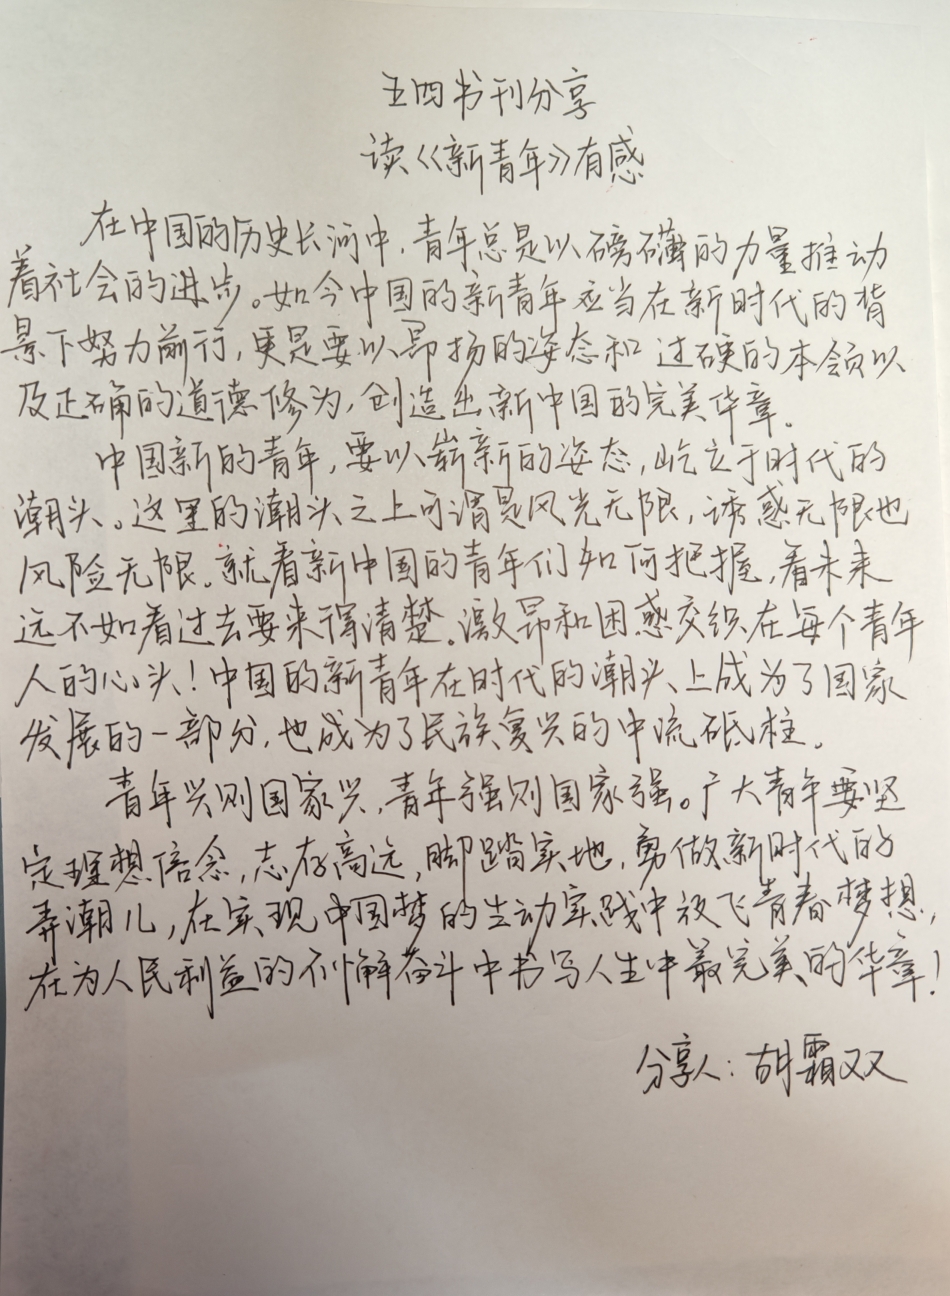 五四书刊分享
读《新青年》有感
在中国的历史长河中，青年总是以磅礴的力量推动
着社会的进步。如今中国的新青年应当在新时代的背
景下努力前行，更是要以昂扬的姿态和过硬的本领以
及正确的道德修为，创造出新中国的完美华章。
中国新的青年，要以崭新的姿态，屹立于时代的
潮头。这里的潮头之上可谓是风光无限，诱惑无限也
风险无限。就看新中国的青年们如何把握，看未来
远不如看过去要来得清楚。激昂和困惑交织在每个青年
人的心头！中国的新青年在时代的潮头上成为了国家
发展的一部分，也成为了民族复兴的中流砥柱。
青年兴则国家兴，青年强则国家强。广大青年要坚
定理想信念，志存高远，脚踏实地，勇做新时代的
弄潮儿，在实现中国梦的生动实践中放飞青春梦想，
在为人民利益的不懈奋斗中书写人生中最完美的华章！
分享人：胡霜双